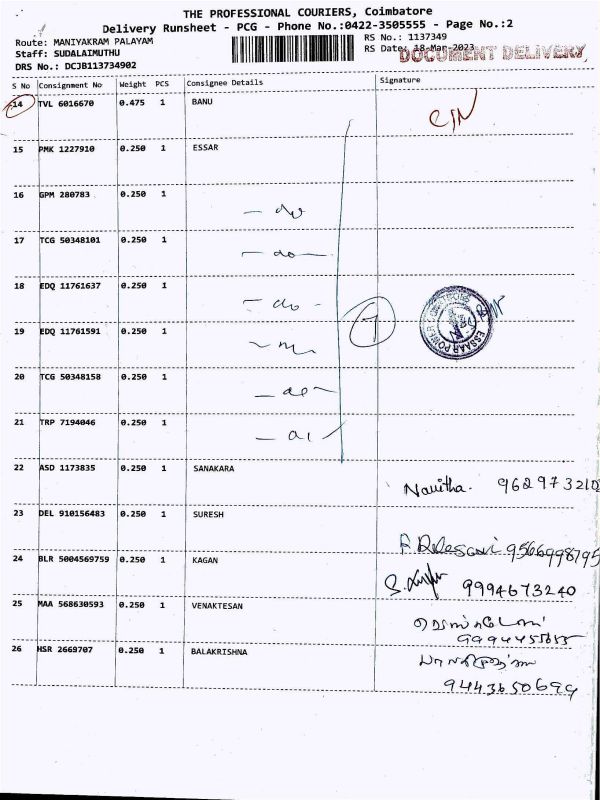 THE PROFESSIONAL COURIERS, Coimbatore
Delivery Runsheet - PCG - Phone No.:0422-3505555 - Page No.:2
Route: MANIYAKRAM PALAYAM
RS No.: 1137349
Staff: SUDALAIMUTHU
RS Date: 18-Mar-2023
DOCUMENT DELIVERY
DRS No.: DCJB113734902
S No Consignment No Weight PCS Consignee Details Signature
14 TVL 6016670 0.475 1 BANU
15 PMK 1227910 0.250 1 ESSAR
16 GPM 280783 0.250 1
- do
17 TCG 50348101 0.250 1
- do -
18 EDQ 11761637 0.250 1
- do -
7
19 EDQ 11761591 0.250 1
20 TCG 50348158 0.250 1
- do -
21 TRP 7194046 0.250 1
22 ASD 1173835 0.250 1 SANAKARA
Navitha. 9629732102
23 DEL 910156483 0.250 1 SURESH
9566998795
24 BLR 5004569759 0.250 1 KAGAN
9994673240
25 MAA 568630593 0.250 1 VENAKTESAN
26 HSR 2669707 0.250 1 BALAKRISHNA
9443650699